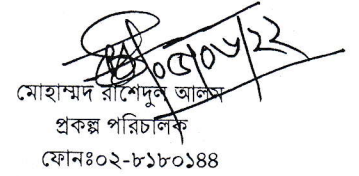 ০৫/০৬/২২
মোহাম্মদ রাশেদুল আলম
প্রকল্প পরিচালক
ফোনঃ০২-৮১৮০১৪৪